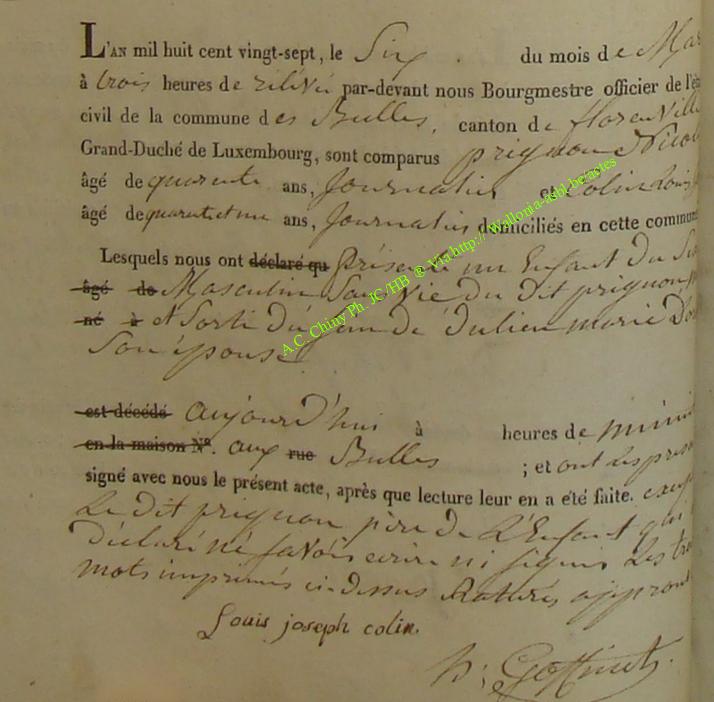 L'AN mil huit cent vingt-sept, le Six du mois de Mar
à trois heures de rélevée par-devant nous Bourgmestre officier de l'ét
civil de la commune des Bulles, canton de florenville
Grand-Duché de Luxembourg, sont comparus prignon Nicol
âgé de quarente ans, journalier et Colin Louis
âgé de quarentetune ans, journalier domiciliés en cette commun
Lesquels nous ont déclaré qu présenté un Enfant du
âgé de Masculin Sans Vie du dit prignon
né à et Sorti du sein de Julien marie
Son épouse
est décédé aujourd'hui à heures de minuit
en la maison Nº. aux rue Bulles ; et ont les
signé avec nous le présent acte, après que lecture leur en a été faite.
Le dit prignon père de L'Enfant qui
déclaré né savoir écrire ni signer Les
mots imprimés ci-dessus Raturés
Louis joseph colin.
h: Goffinet.
A.C. Chiny Ph. JC /HB @ Via http:// Wallonia-asbl.be/actes